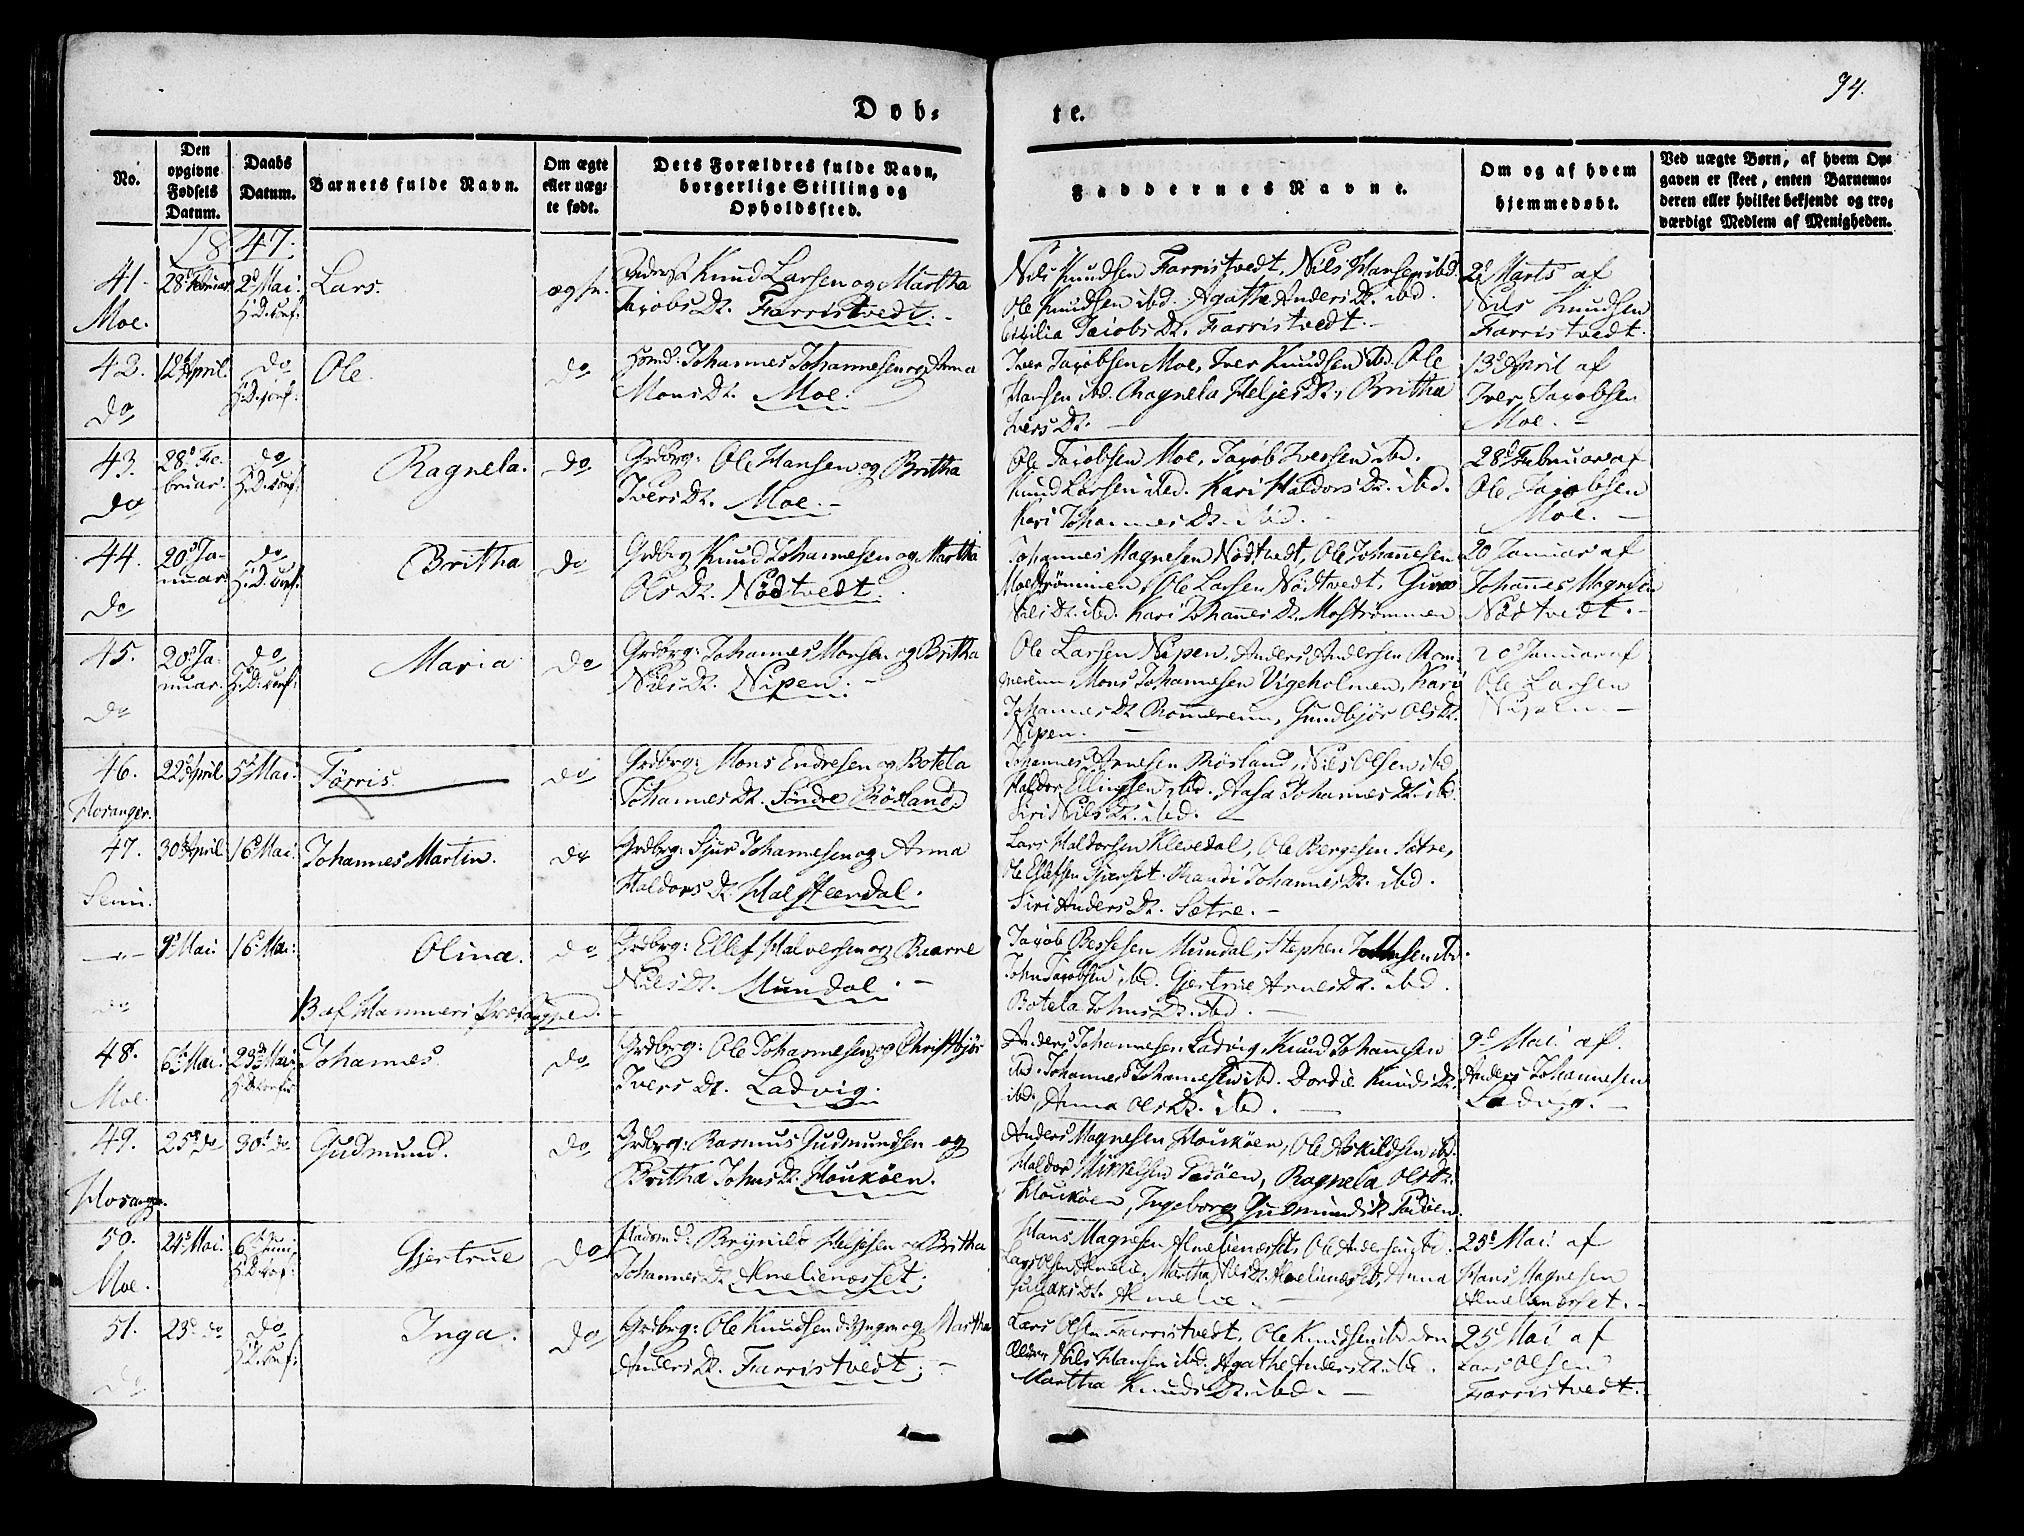 94.
Døb-
te.
No.
Den opgivne Fødsels Datum.
Daabs Datum.
Barnets fulde Navn.
Om ægte eller uæg-te født.
Dets Forældres fulde Navn, borgerlige Stilling og Opholdssted.
Faddernes Navne.
Om og af hvem hjemmedøbt.
Ved uægte Børn, af hvem Op-
gaven er skeet, enten Barnemo-
deren eller hvilket bekjendt og tro-
værdigt Medlem af Menigheden.
1847.
41. 28d Februar 2d Mai. Lars.
Moe.
Knud Larsen og Martha
Jacobs Dt. Farristvedt.
Nils Knudsen Farristvedt, Nils Hansen ibd.
Ole Knudsen ibd. Agathe Anders Dt. ibd.
Jacobs Dt. Farristvedt.
2d Marts af
Nils Knudsen
Farristvedt.
42. 12d April do Ole. do
do
Johannes Johannesen og Anna
Mons Dt. Moe.
Iver Jacobsen Moe, Iver Knudsen ibd. Ole
Hansen ibd. Ragnela Heljes Dt., Britha
Ivers Dt.
13d April af
Iver Jacobsen
Moe.
43. 28d Fe-
bruar. do Ragnela. do
do
Grdbrg: Ole Hansen og Britha
Ivers Dt. Moe.
Ole Jacobsen Moe, Jacob Iversen ibd.
Knud Larsen ibd. Kari Haldors Dt. ibd.
Kari Johannes Dt. ibd.
28d Februar af
Ole Jacobsen
Moe.
44. 20d Ja-
nuar. do Britha do
do
Grdbrg Knud Johannesen og Martha
Ols Dt. Nødtvedt.
Johannes Magnesen Nødtvedt, Ole Johannesen
Mostrømmen, Ole Larsen Nødtvedt,
Nils Dt. ibd. Kari Johannes Dt. Mostrømmen
20 Januar af
Johannes Magnesen
Nødtvedt.
45. 20d Ja-
nuar. do Maria do
do
Grdbrg: Johannes Monsen og Britha
Nils Dt. Nipen.
Ole Larsen Nipen, Anders Andersen Rom-
mereim Mons Johannesen Vigeholmen, Kari
Johannes Dt Rommereim, Gundbjør Ols Dt.
Nipen.
20d Januar af
Ole Larsen
Nipen.
46. 22d April 5d Mai. Tørris. do
Hosanger.
Grdbrg: Mons Endresen og Botela
Johannes Dt. Søndre Røsland.
Johannes Arnesen Røsland, Nils Olsen ibd
Haldor Ellingsen ibd. Aasa Johannes Dt. ibd.
Siri Nils Dt. ibd.
47. 30d April 16d Mai. Johannes Martin. do
Grdbrg: Sjur Johannesen og Anna
Haldors Dt Halsteendal.
Lars Haldorsen Klevedal, Ole Bergesen Sætre,
Ole Ellefsen Randi Johannes Dt. ibd.
Siri Anders Dt. Sætre.
9d Mai. 16d Mai. Olina. do
do
Grdbrg: Ellef Halvorsen og
Nils Dt. Mundal.
Jacob Mundal, Stephen ibd.
John Jacobsen ibd. Gjertrue Arnes Dt. ibd.
Botela Johns Dt. ibd.
B af Hammers
48. 6d Mai. 23d Mai Johannes. do
Moe.
Grdbrg: Ole Johannesen og
Ivers Dt. Ladvig.
Anders Johannesen Ladvig, Knud Johannesen
ibd. Johannes Johannesen ibd. Dordie Knuds Dt.
ibd., Anna Ols Dt. ibd.
9d Mai af
Anders Johannesen
Ladvig.
49. 25d do 30d do Gudmund. do
Hosanger.
Grdbrg: Rasmus Gudmundsen og
Britha Johns Dt. Houkøen.
Anders Magnesen Houkøen, Ole Askildsen ibd.
Haldor Mikkelsen Padøen, Ragnela Ols Dt.
Houkøen, Ingeborg Gudmunds Dt
50. 24d Mai. 6d Juni, Gjertrue do
Moe.
Brynild og Britha
Johannes Dt Almelienæsset.
Hans Magnesen Almelienæsset, Ole Andersen
Lars Olsen Almelie, Martha Nils Dt. Almelienæsset, Anna
Almelie.
25d Mai af
Hans Magnesen
Almelienæsset.
51. 23d do do Inga. do
do
Grdbrg: Ole Knudsen d: Yngre og Martha
Anders Dt. Farristvedt.
Lars Olsen Farristvedt, Ole Knudsen ibd den
Ældre Nils Hansen ibd. Agathe Anders Dt. ibd.
Martha Knuds Dt. ibd.
25d Mai af
Lars Olsen
Farristvedt.